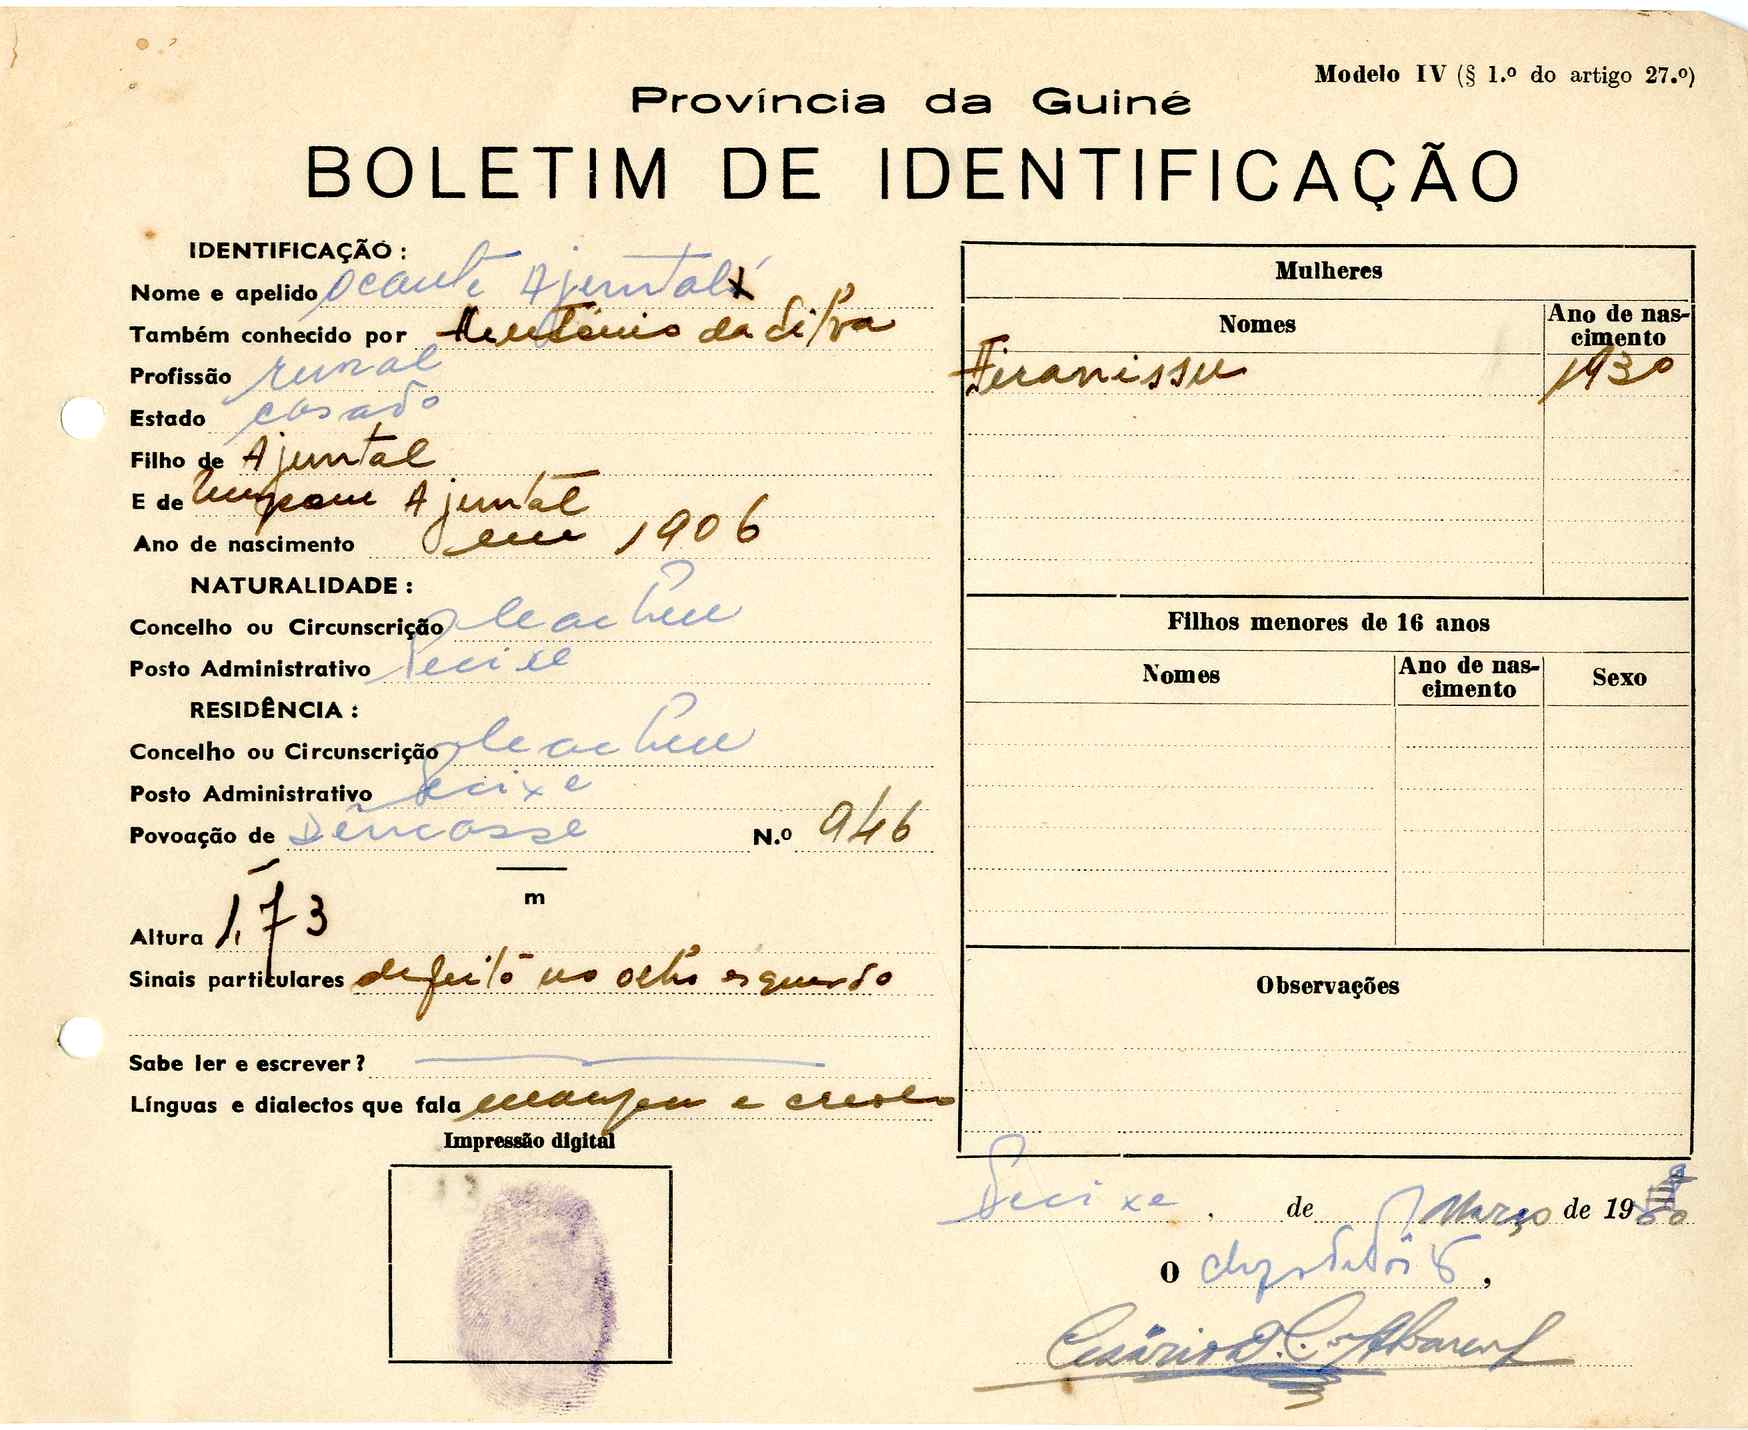 Modelo IV (§ 1.º do artigo 27.º)
Província da Guiné
BOLETIM DE IDENTIFICAÇÃO
IDENTIFICAÇÃO :
Nome e apelido Ocante Ajuntal
Também conhecido por António da Silva
Profissão rural
Estado casado
Filho de Ajuntal
E de Ajuntal
Ano de nascimento em 1906
NATURALIDADE :
Concelho ou Circunscrição Cacheu
Posto Administrativo Pecixe
RESIDÊNCIA :
Concelho ou Circunscrição Cacheu
Posto Administrativo Pecixe
Povoação de N.º 946
m
Altura 1,73
Sinais particulares defeito no olho esquerdo
Sabe ler e escrever ?
Línguas e dialectos que fala e creolo
Impressão digital
Mulheres
Nomes
Ano de nascimento
1930
Filhos menores de 16 anos
Nomes
Ano de nascimento
Sexo
Observações
Pecixe, de Março de 19
O ,